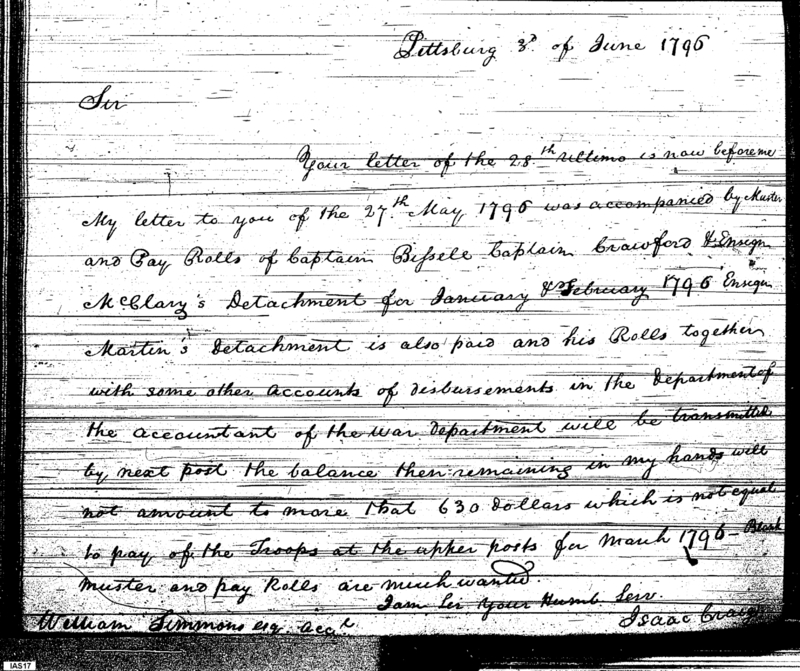 Pittsburg 3d of June 1796
Sir
Your letter of the 28.th ultimo is now before me
My letter to you of the 27.th May 1796 was accompanied by Muster
and Pay Rolls of Captain Bissell Captain Crawford & Ensign
McClary's Detachment for January & February 1796 Ensign
Martin's Detachment is also paid and his Rolls together
with some other accounts of disbursements in the department of
the accountant of the war department will be transmitted
by next post the balance then remaining in my hands will
not amount to more that 630 dollars which is not equal
to pay of the Troops at the upper posts for March 1796 - Blank
muster and pay Rolls are much wanted.
I am Sir Your Humb. Serv.
William Simmons esq. acct
Isaac Craig
IAS17